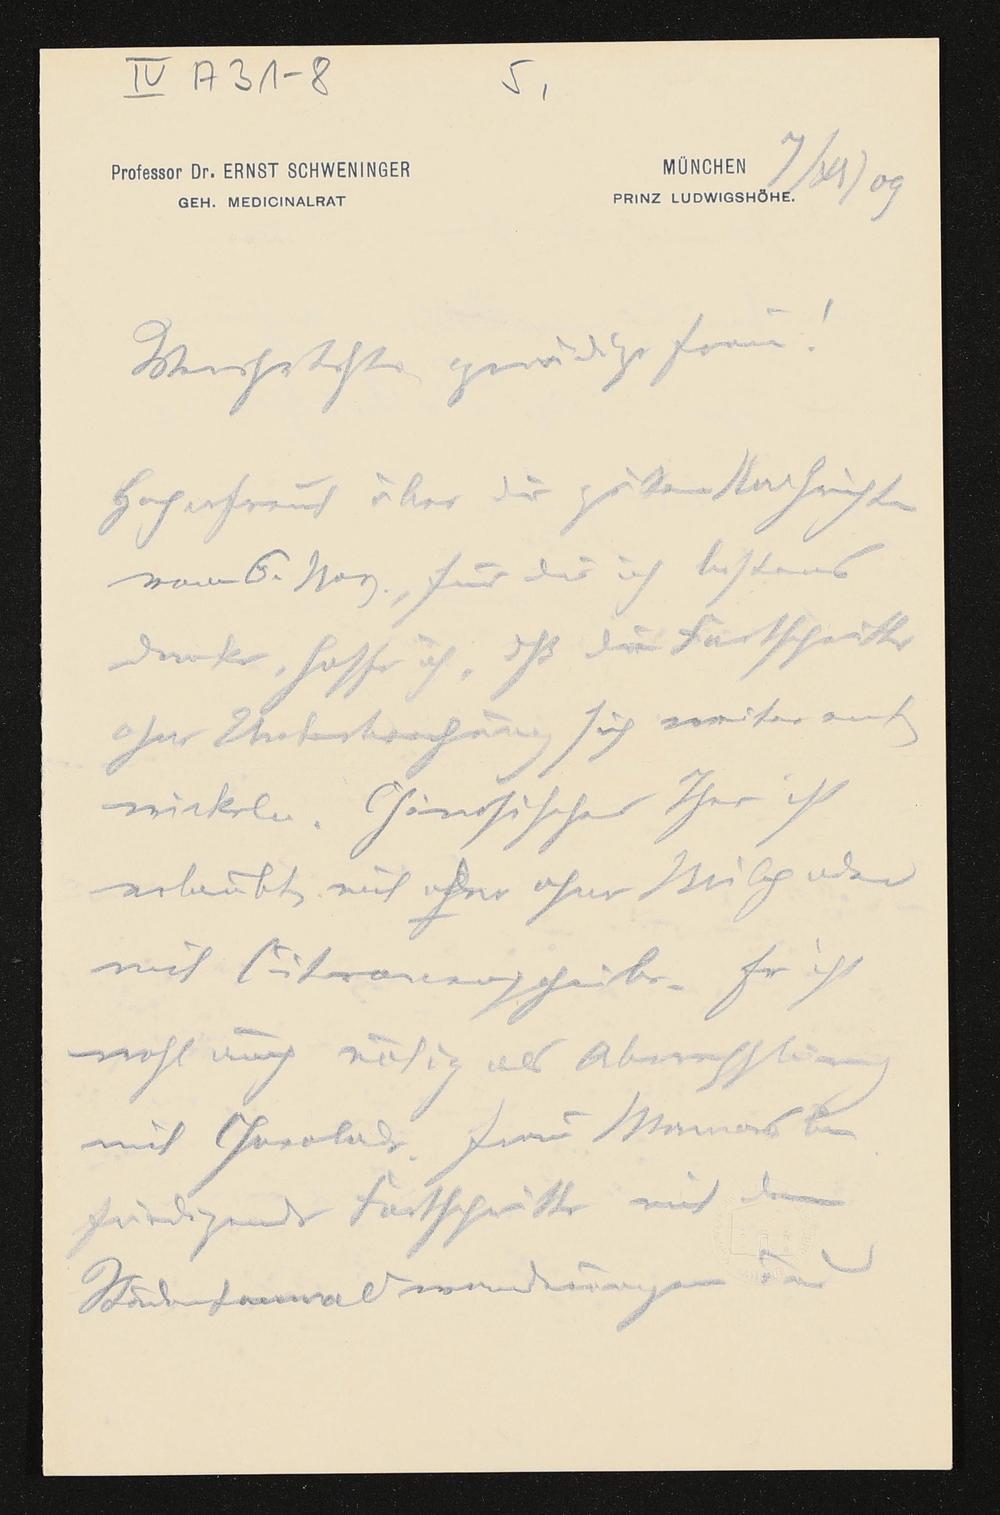 IV A 31-8
5,
Professor Dr. ERNST SCHWENINGER
GEH. MEDICINALRAT
MÜNCHEN 7/XI) 09
PRINZ LUDWIGSHÖHE.
gnädige Frau!
Hocherfreut über die guten Nachrichten
vom 6. Nov., für die ich bestens
danke, hoffe ich, dß die Fortschritte
ohne Unterbrechung sich weiter ent
wickeln. Chinesischer Thee ist
erlaubt, mit oder ohne Milch oder
mit Citronenscheibe. Er ist
wohl auch nötig als Abwechslung
mit Chocolade. Frau Mamas be
friedigende Fortschritte mit den